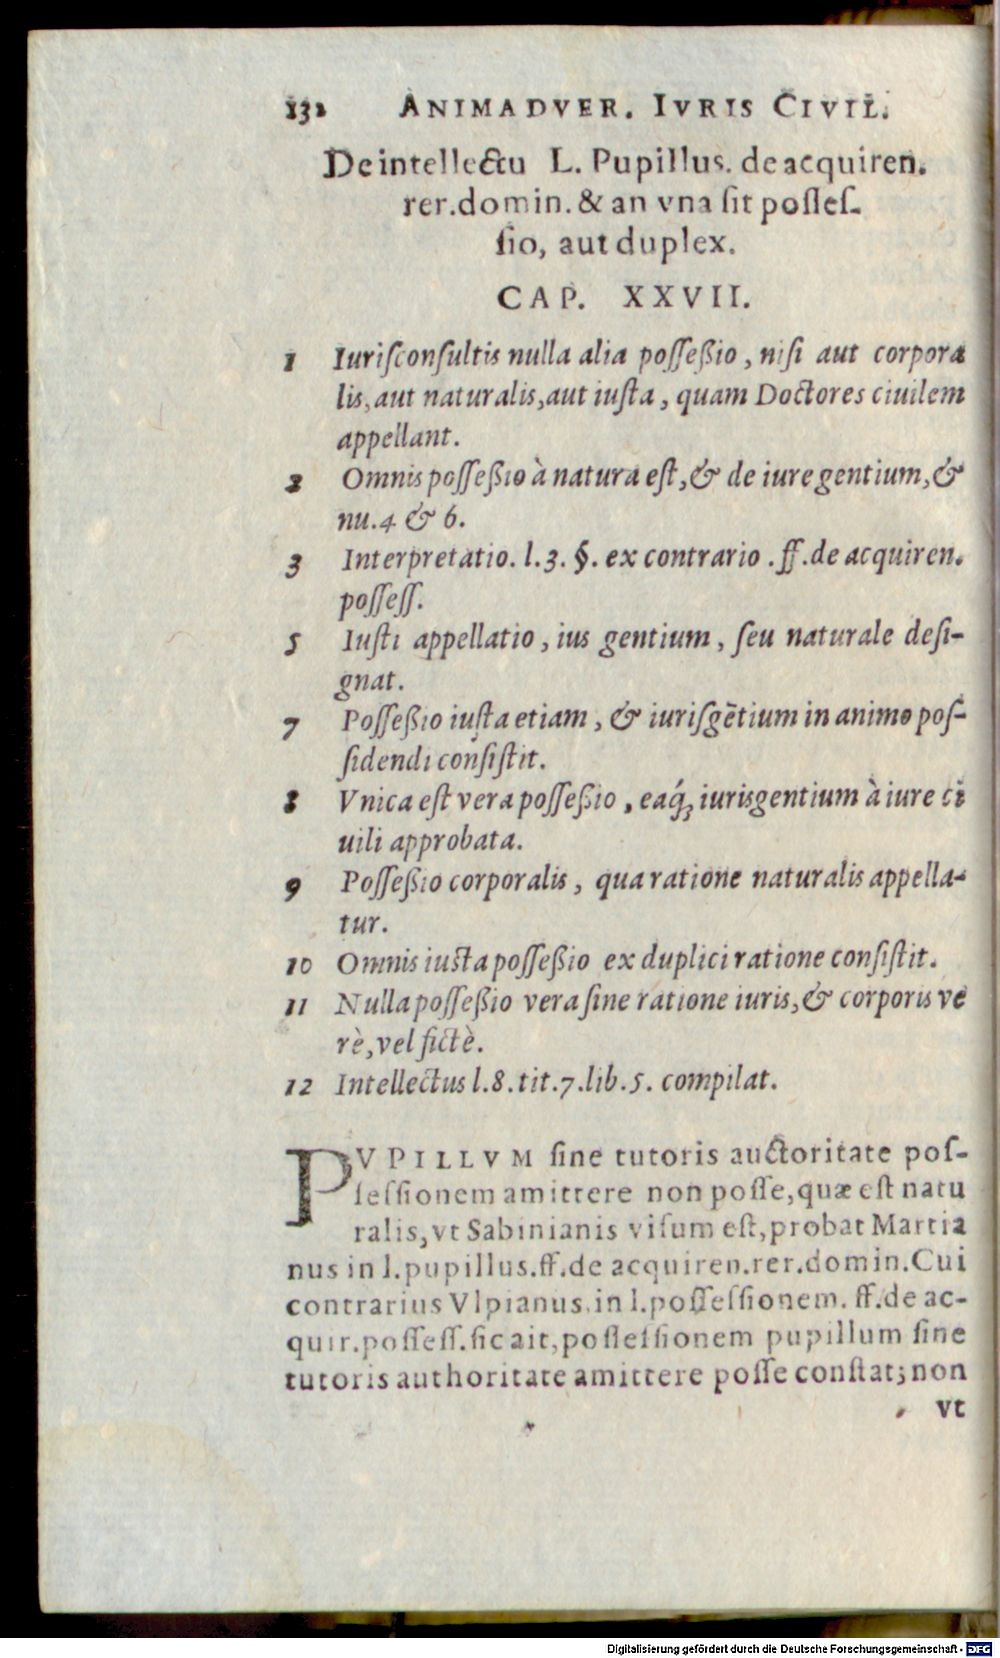 132 ANIMADVER. IVRIS CIVIL.
De intellectu L. Pupillus. de acquiren.
rer.domin. & an vna sit posses-
sio, aut duplex.
CAP. XXVII.
1 Iuriſconſultis nulla alia poſſeßio, niſi aut corpora
lis, aut naturalis, aut iuſta, quam Doctores ciuilem
appellant.
2 Omnis poſſeßio à natura eſt, & de iure gentium, &
nu.4 & 6.
3 Interpretatio. l.3. §. ex contrario .ff.de acquiren.
poſſeſſ.
5 Iuſti appellatio, ius gentium, ſeu naturale deſi-
gnat.
7 Poſſeßio iuſta etiam, & iuriſgētium in animo poſ-
ſidendi conſiſtit.
8 Vnica eſt vera poſſeßio, eaq́; iurisgentium à iure ci
uili approbata.
9 Poſſeßio corporalis, qua ratione naturalis appella-
tur.
10 Omnis iusta poſſeßio ex duplici ratione conſiſtit.
11 Nulla poſſeßio vera ſine ratione iuris, & corporis ve
rè, vel fictè.
12 Intellectus l.8.tit.7.lib.5. compilat.
PVPILLVM ſine tutoris auctoritate poſ-
ſeſſionem amittere non poſſe, quæ eſt natu
ralis, vt Sabinianis viſum eſt, probat Martia
nus in l.pupillus.ff.de acquiren.rer.domin.Cui
contrarius Vlpianus in l.poſſeſſionem. ff.de ac-
quir.poſſeſſ.ſic ait, poſſeſſionem pupillum ſine
tutoris authoritate amittere poſſe conſtat; non
vt
Digitalisierung gefördert durch die Deutsche Forschungsgemeinschaft - DFG